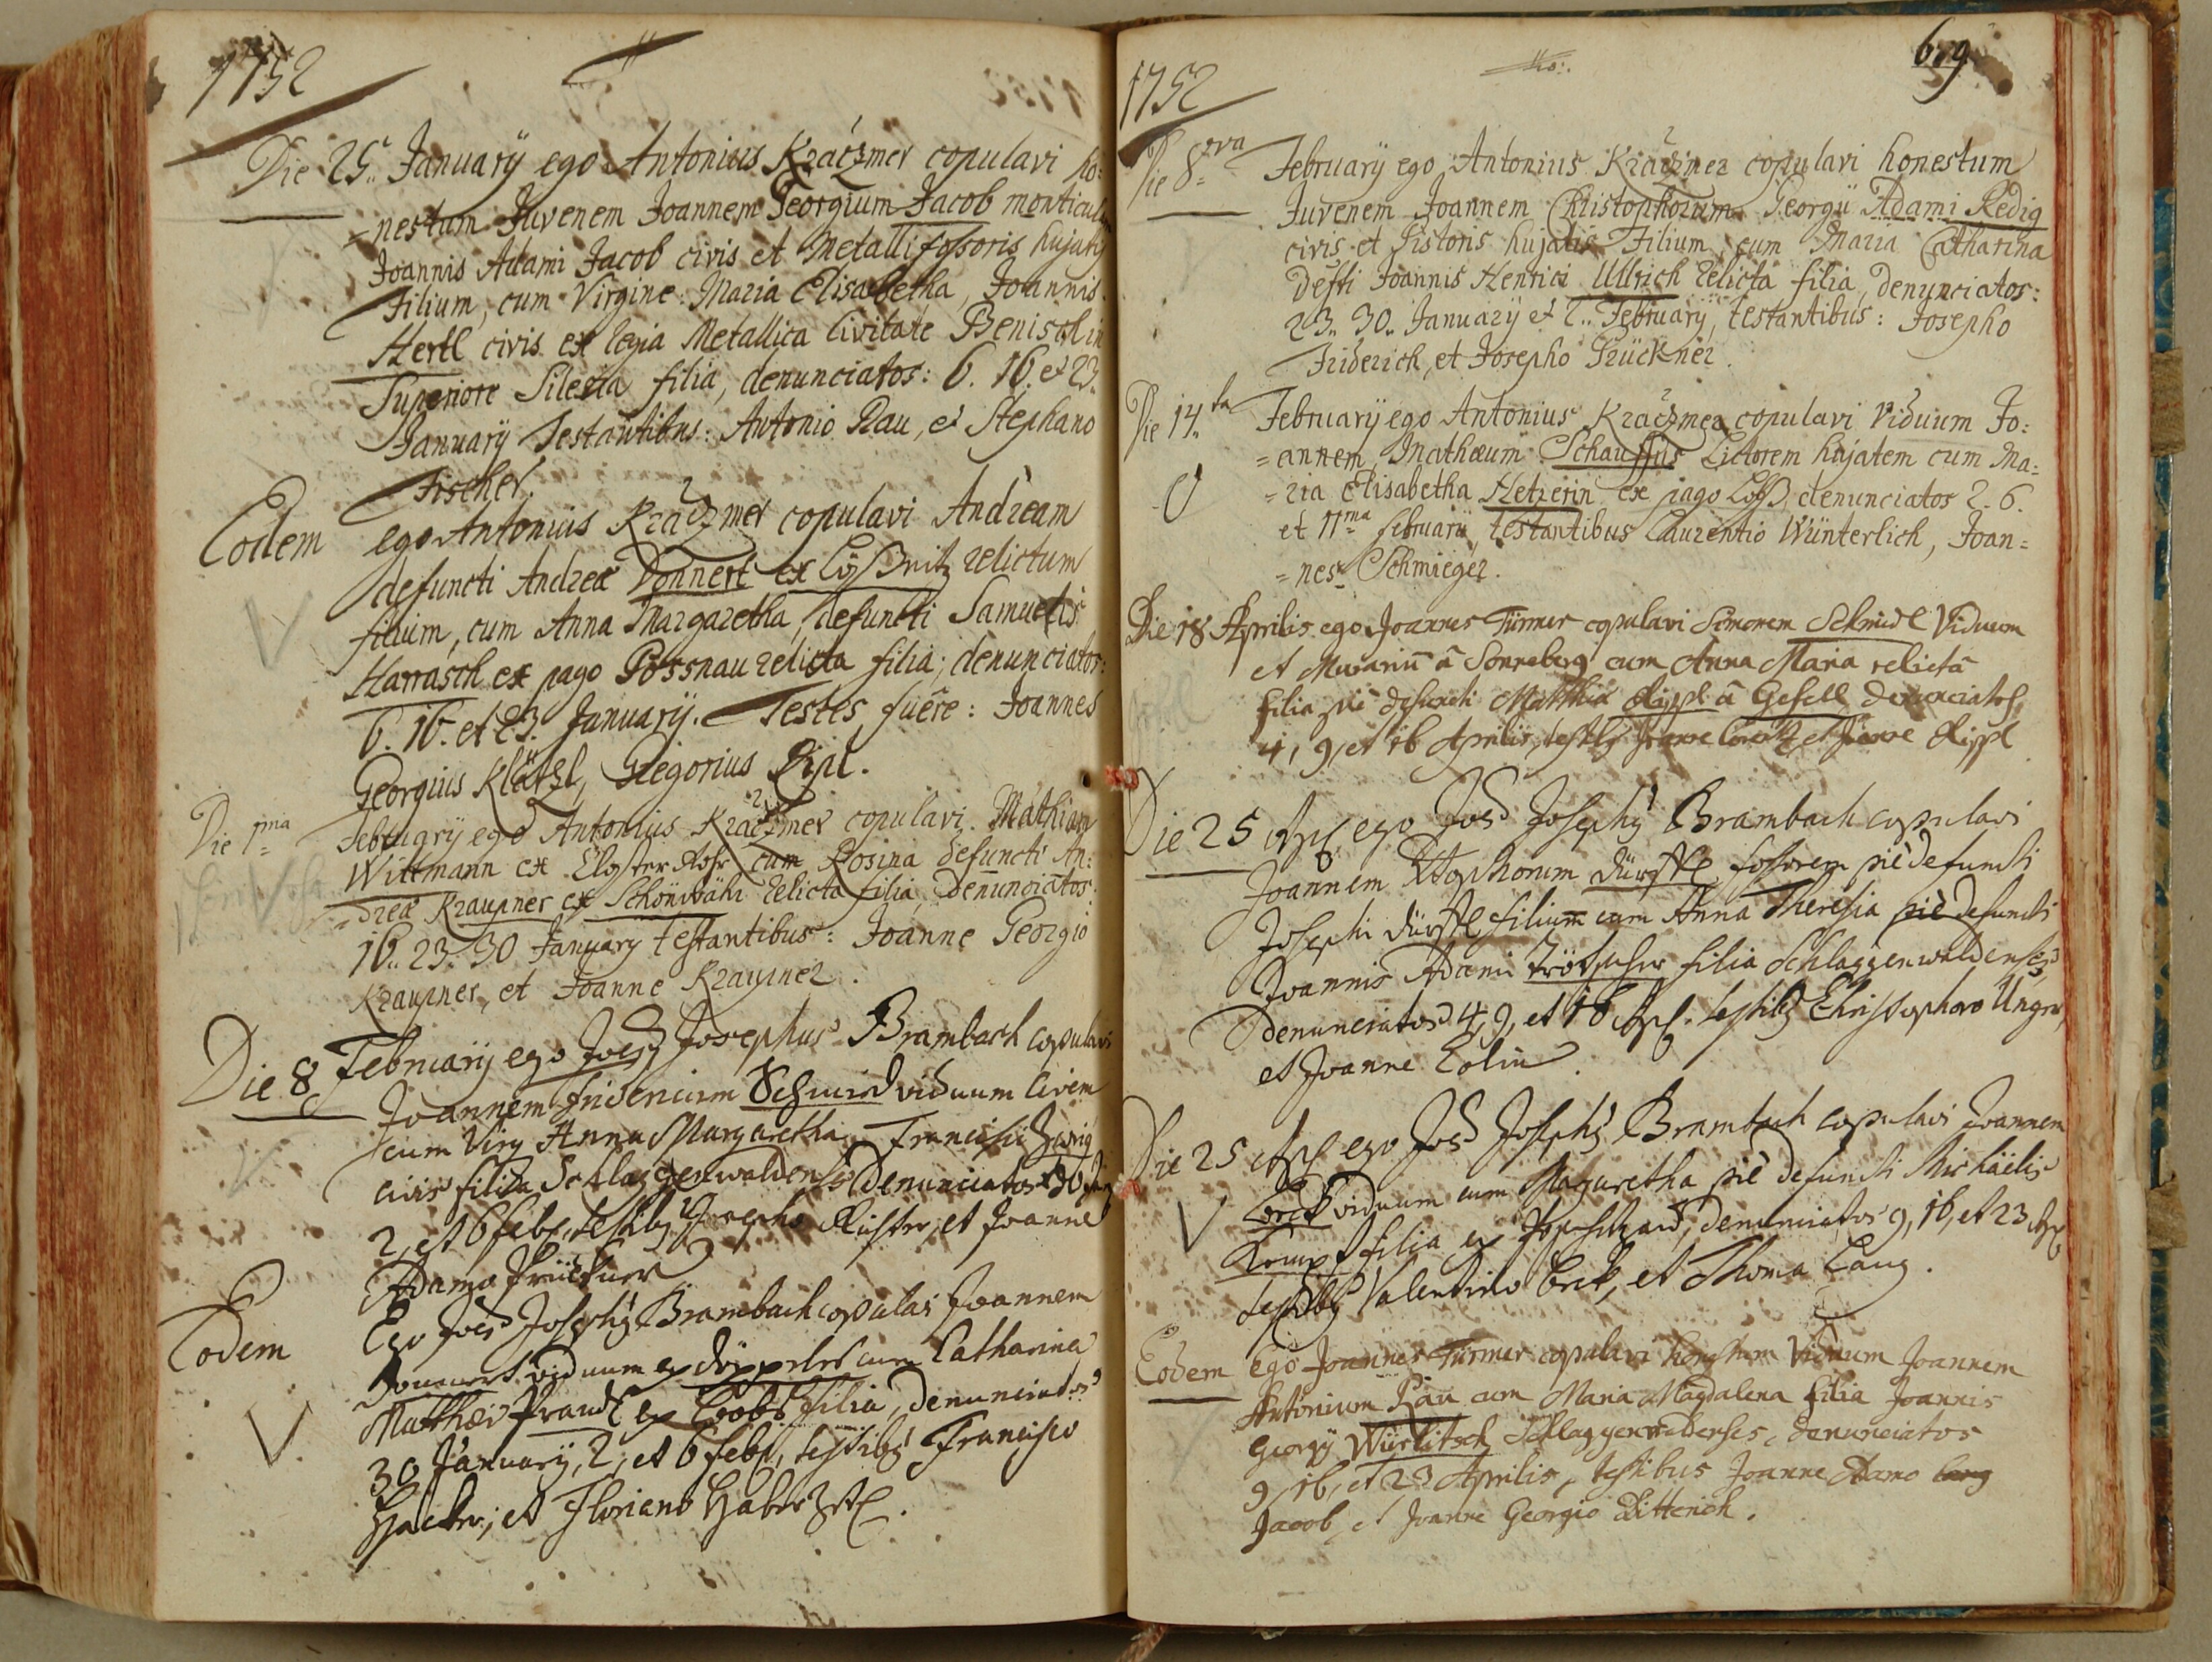 1752
Die 25. Januarÿ ego Antonius Kraczmer copulavi ho:
=nestum Juvenem Joannem Georgium Jacob
Joannis Adami Jacob civis et Metallifossoris hujatis
Filium, cum Virgine: Maria Elisabetha, Joannis
Hertl civis ex regia Metallica Civitate Benisch in
Superiore Silesia filia, denunciatos: 6. 16. et 23.
Januarÿ Testantibus: Antonio Rau, et Stephano
Fischer.
Eodem ego Antonius Kraczmer copulavi Andream
defuncti Andreæ Donnert ex relictum
filium, cum Anna Margaretha, defuncti Samuelis
Harrasch ex pago Possnau relicta filia; denunciatos:
6. 16. et 23. Januarÿ. Testes fuêre: Joannes
Georgius Klätzl, Gregorius Ripl.
Die 1ma Februarÿ ego Antonius Kraczmer copulavi Mathiam
Wittmann ex cum Rosina defuncti An:
=dreæ Kraupner ex Schönwähr relicta filia, denunciatos:
16. 23. 30 Januarÿ testantibus: Joanne Georgio
Kraupner, et Joanne Kraupner.
Die 8 Februarÿ ego Joes Josephus Brambach copulavi
Joannem Fridericum Schmid viduum Civem
cum Virg Anna Margaretha Francisci
civis filia Schlaggenwaldens denunciatos 30
2, et 6 feb, testib Josepho Richter, et Joanne
Adamo Prückner
Eodem Ego Joes Josephg Brambach copulavi Joannem
Donnert viduum ex cum Catharina
Matthæi Prandl ex filia, denunciatos
30 Januarÿ, 2, et 6 feb, testibg Francisco
Hacker, et Floriano
1752
619
Die 8va Februarÿ ego Antonius Kraczmer copulavi honestum
Juvenem Joannem Christophorum Georgii Adami Redig
civis et Pistoris hujatis Filium, cum Maria Catharina
Defti Joannis Henrici Ullrich relicta filia, denunciatos:
23. 30. Januarÿ et 2. Februarÿ, testantibus: Josepho
Friderich, et Josepho Prückner.
Die 14.ta Februarÿ ego Antonius Kraczmer copulavi Viduum Jo:
=annem Mathæum Lictorem hujatem cum Ma:
=ria Elisabetha Hetzerin ex pago denunciatos 2. 6.
et 11ma februarii, testantibus Laurentio Wünterlich, Joan=
=nes Schmieger.
Die 18 Aprilis ego Joannes Türmer copulavi Simonem Schmidl Viduum
et Murariũ â Sonneberg cum Anna Maria relictâ
filia piè defuncti Matthiæ Rippl â Gesell denunciatos,
4, 9, et 16 Aprilis, testibg Joanne et Joanne Rippl
Die 25 Apl ego Joes Josephg Brambach copulavi
Joannem fossorem piè defuncti
Josephi filium cum Anna Theresia piè defuncti
Joannis Adami Trötscher filia Schlaggenwaldenses
denunciatos 4, 9, et 16 Apl. testibg Christophoro Unger,
et Joanne Colin.
Die 25 Apl ego Joes Josephg Brambach copulavi Joannem
Beck viduum cum Magaretha piè defuncti Michäelis
Kempf filia ex denunciatos 9, 16, et 23 Apl
testibg Valentino Beck, et Thoma Lang.
Eodem Ego Joannes Türmer copulavi honestum Viduum Joannem
Antonium Rau cum Maria Magdalena filia Joannis
Georgÿ Würlitsch Schlaggenwaldenses, denunciatos
9, 16, et 23 Aprilis, testibus Joanne Adamo
Jacob, et Joanne Georgio Ditterich.